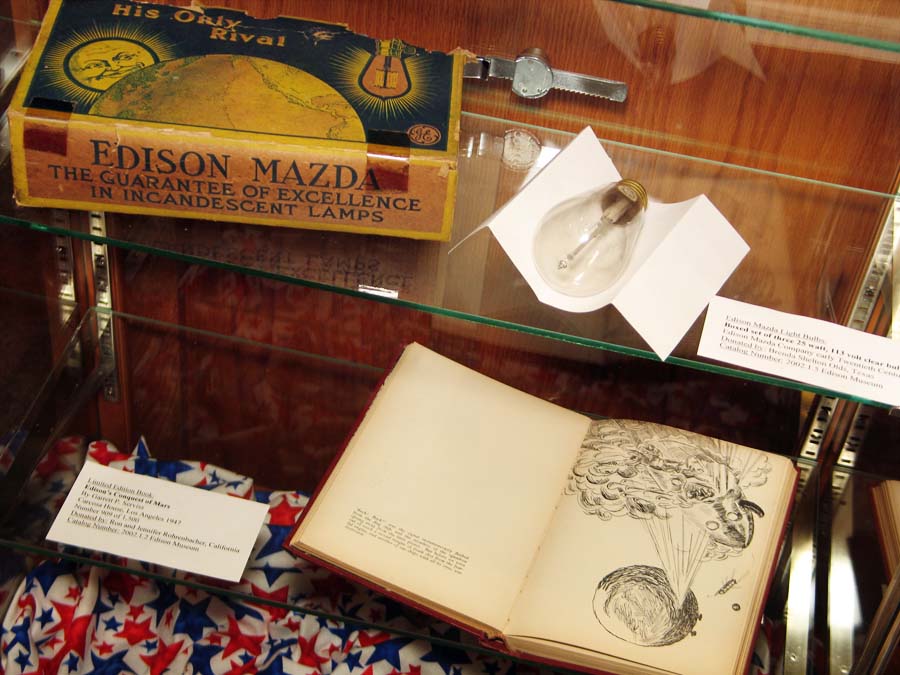 His Only
Rival
GE
EDISON MAZDA
THE GUARANTEE OF EXCELLENCE
IN INCANDESCENT LAMPS
Edison Mazda Light Bulbs,
Boxed set of three 25 watt, 113 volt clear bul
Edison Mazda Company early Twentieth Centu
Donated by: Brenda Shelton Olds, Texas
Catalog Number: 2002.1.5 Edison Museum
Limited Edition Book,
Edison's Conquest of Mars
By Garrett P. Serviss
Carcosa House, Los Angeles 1947
Number 909 of 1,500
Donated by: Ron and Jennifer Rohrenbacher, California
Catalog Number: 2002.1.2 Edison Museum